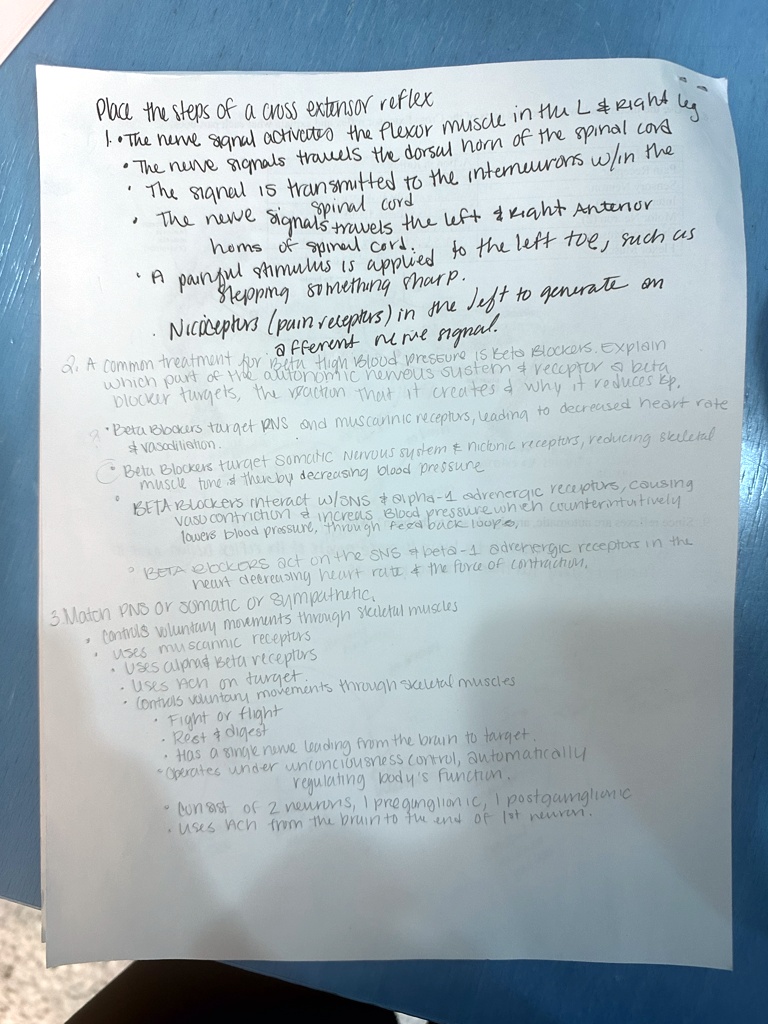 Place the steps of a cross extensor reflex
1. • The nerve signal activates the flexor muscle in the L & Right leg
• The nerve signals travels the dorsal horn of the spinal cord
• The signal is transmitted to the interneurons w/in the
spinal cord
• The nerve signals travels the left & Right Anterior
horns of spinal cord.
• A painful stimulus is applied to the left toe, such as
stepping something sharp.
• Nicioceptors (pain receptors) in the left to generate an
afferent nerve signal.
2. A common treatment for Beta High Blood pressure is Beta Blockers. Explain
which part of the autonomic nervous system & receptor a beta
blocker targets, the reaction that it creates & why it reduces BP.
• Beta Blockers target PNS and muscarinic receptors, leading to decreased heart rate
& vasodiliation.
• Beta Blockers target somatic nervous system & nictonic receptors, reducing skeletal
muscle tone & thereby decreasing blood pressure
• BETA Blockers interact w/SNS & alpha-1 adrenergic receptors, causing
vasocontriction & increas Blood pressure which counterintuitively
lowers blood pressure, through feed back loops,
• BETA Blockers act on the SNS & beta-1 adrenergic receptors in the
heart decreasing heart rate & the force of contraction.
3. Match PNS or somatic or sympathetic.
• controls voluntary movements through skeletal muscles
• uses muscannic receptors
• uses alpha & Beta receptors
• uses Ach on target.
• controls voluntary movements through skeletal muscles
• Fight or flight
• Rest & digest
• Has a single nerve leading from the brain to target.
• Operates under unconciousness control, automatically
regulating body's function.
• consist of 2 neurons, 1 preganglionic, 1 postganglionic
• uses Ach from the brain to the end of 1st neuron.